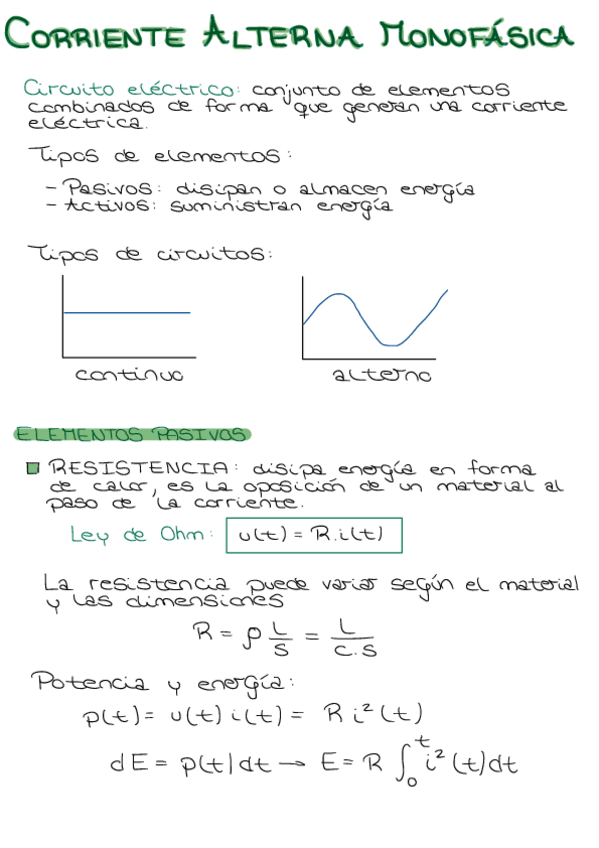 CORRIENTE ALTERNA MONOFÁSICA
Circuito eléctrico: conjunto de elementos
combinados de forma que generan una corriente
eléctrica.
Tipos de elementos:
- Pasivos: disipan o almacen energía
- Activos: suministran energía
Tipos de circuitos:
continuo
alterno
ELEMENTOS PASIVOS
RESISTENCIA: disipa energía en forma
de calor, es la oposición de un material al
paso de la corriente.
Ley de Ohm: u(t) = R.i(t)
La resistencia puede variar según el material
y las dimensiones
R = ρ L/S = L/C.S
Potencia y energía:
p(t) = u(t) i(t) = R i²(t)
dE = p(t)dt → E = R ∫₀ᵗ i²(t)dt